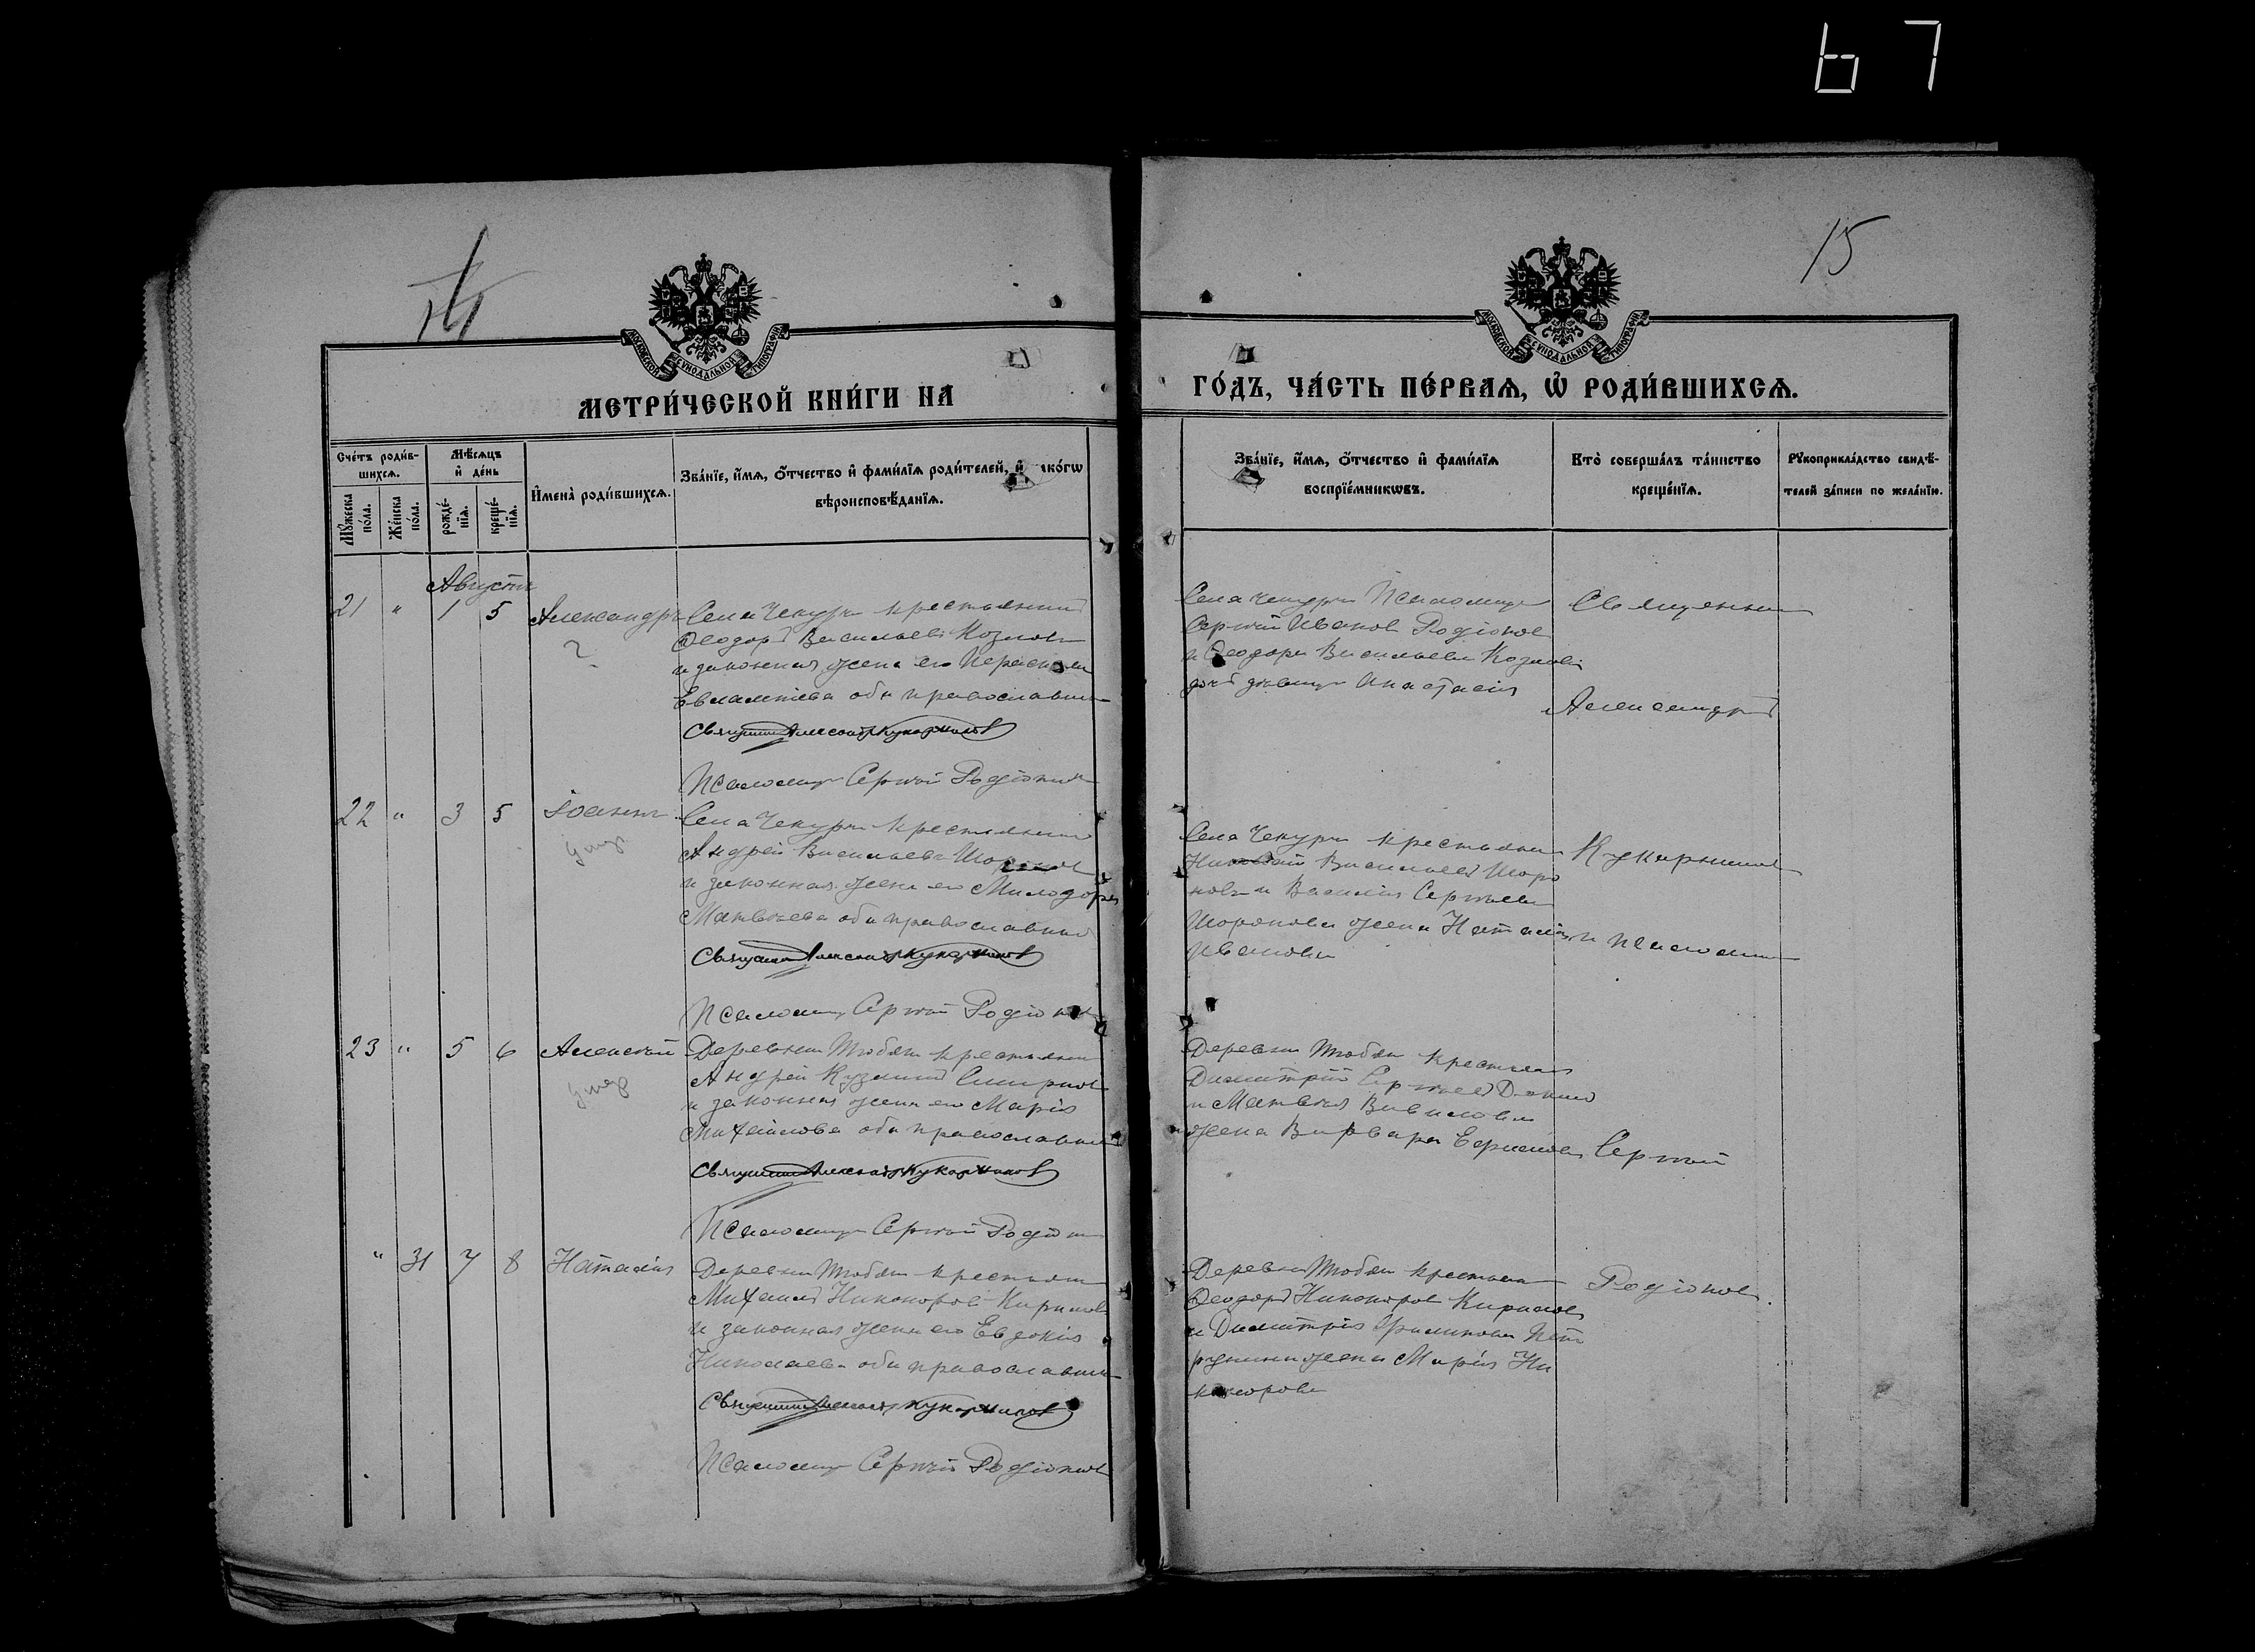 67
15
МОСКОВСКОЙ СѴНОДАЛЬНОЙ ТИПОГРАФІИ
МОСКОВСКОЙ СѴНОДАЛЬНОЙ ТИПОГРАФІИ
МЕТРИ́ЧЕСКОЙ КНИ́ГИ НА
ГО́ДЪ, ЧА́СТЬ ПЕ́РВАѦ, Ѡ҆ РОДИ́ВШИХСѦ.
Сче́тъ роди́в-
шихсѧ.
Мꙋ́жеска по́ла.
Же́нска по́ла.
Мѣ́сѧцъ
и҆ де́нь
рожде́-
нїѧ.
креще́-
нїѧ.
И҆мена̀ роди́вшихсѧ.
Зва́нїе, и҆́мѧ, ѻ҆́тчество и҆ фами́лїѧ роди́телей, и҆ ко́гѡ
вѣроисповѣ́данїѧ.
Зва́нїе, и҆́мѧ, ѻ҆́тчество и҆ фами́лїѧ
воспрїе́мникѡвъ.
Кто̀ соверша́лъ та́инство
креще́нїѧ.
Рꙋкоприкла́дство свидѣ́-
телей за́писи по жела́нїю.
Августъ
21 " 1 5 Александръ
Села Чекуры крестьянинъ
Ѳеодоръ Васильевъ Козловъ
и законная жена его
Евлампіева оба православные
Священникъ Александръ Кукарниковъ
Псаломщ Сергій Родіонов
Села Чекуры Псаломщ
Сергій Иванов Родіонов
и Ѳеодора Васильева Козлова
дочь девица Анастасія
Священник
Александръ
22 " 3 5 Іоаннъ
умер
Села Чекуры крестьянинъ
Андрей Васильевъ
и законная жена его
Матвѣева оба православные
Священник Александр Кукарников
Псаломщ Сергій Родіонов
Села Чекуры крестьянин
Васильевъ Шоро
новъ и Василія Сергѣева
Шоронова жена Наталія
Иванова
Кукарников
и Псаломщ
23 " 5 6 Алексѣй
умер
Деревни крестьянин
Андрей Кузминъ Смирнов
и законная жена его Марія
Михайлова оба православные
Священник Александр Кукарников
Псаломщ Сергій Родіонов
Деревни крестьянин
Димитрій Сергѣевъ
и Матвѣя Вавилова
жена Варвара
Сергій
" 31 7 8 Наталія
Деревни крестьянин
Михаилъ Никоноров Кирилов
и законная жена его Евдокія
Николаева оба православные
Священник Александр Кукарников
Псаломщ Сергій Родіонов
Деревни крестьянин
Ѳеодоръ Никоноров Кирилов
и Димитрія
жена Марія Ни
Родіонов.